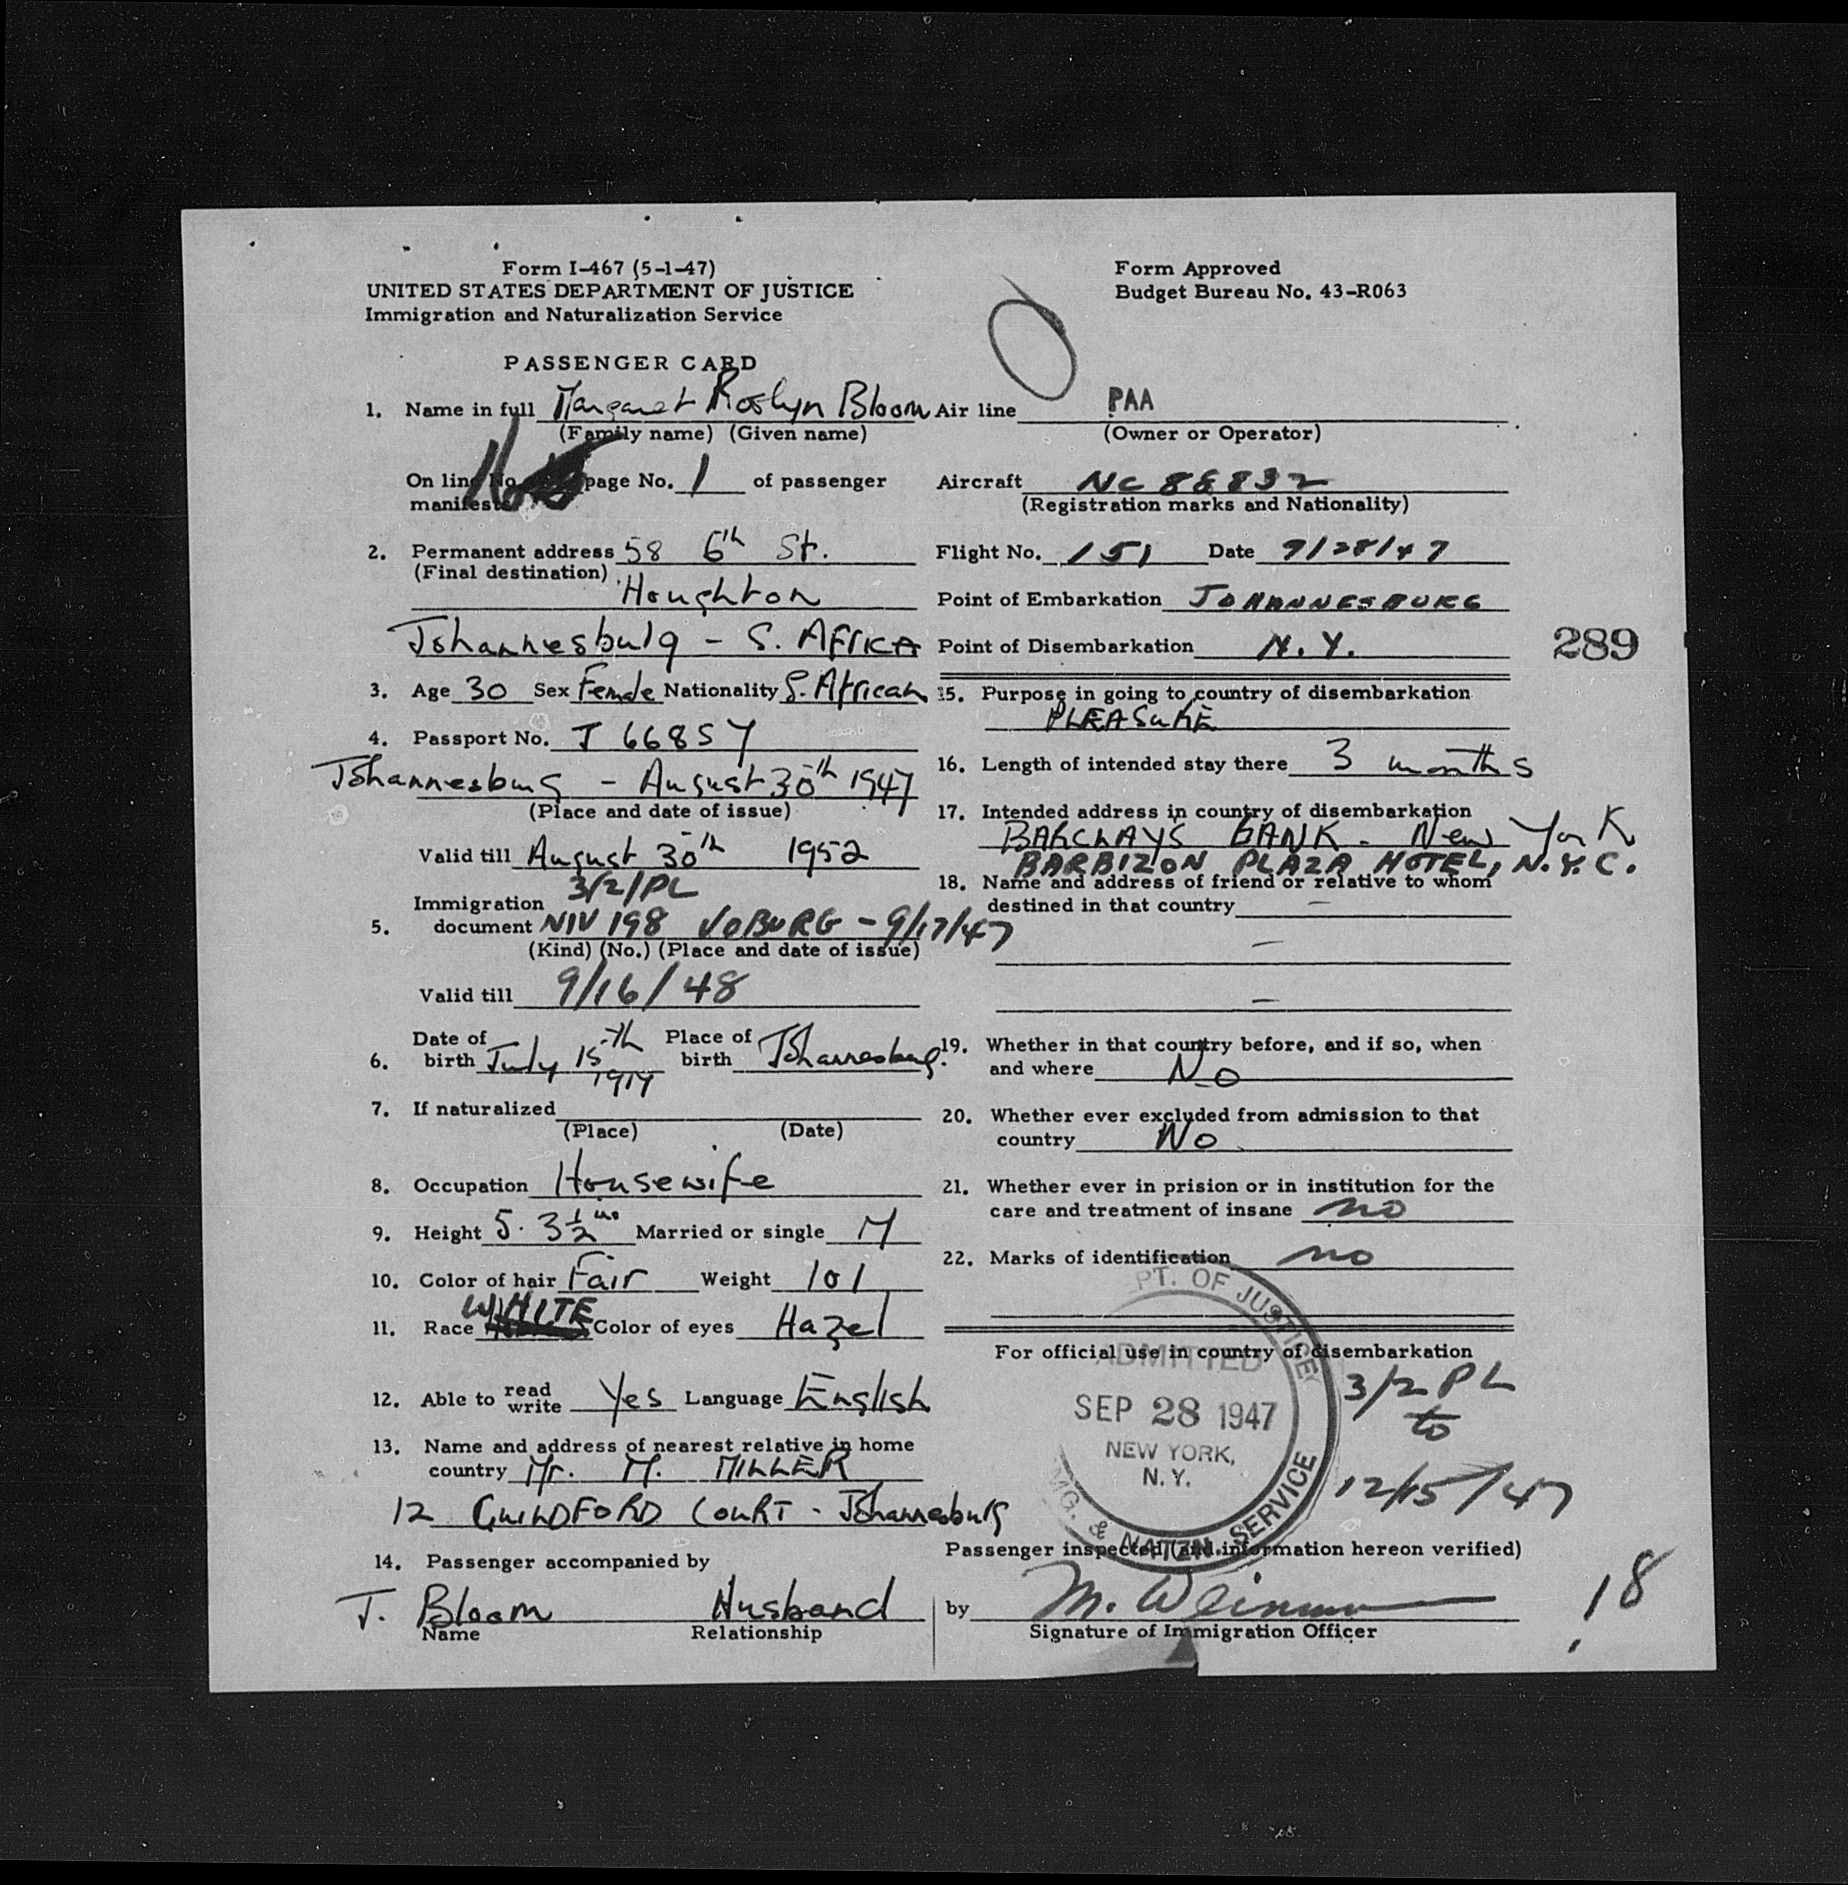 Form I-467 (5-1-47)
UNITED STATES DEPARTMENT OF JUSTICE
Immigration and Naturalization Service
Form Approved
Budget Bureau No. 43-R063
PASSENGER CARD
1. Name in full Margaret Roslyn Bloom
(Family name) (Given name)
On line No. page No. 1 of passenger
manifest
2. Permanent address 58 6th St.
(Final destination) Houghton
Johannesburg - S. AFRICA
3. Age 30 Sex Female Nationality S. African
4. Passport No. J 66857
Johannesburg - August 30th 1947
(Place and date of issue)
Valid till August 30th 1952
3/2/PL
Immigration
5. document NIV 198 JOBURG - 9/17/47
(Kind) (No.) (Place and date of issue)
Valid till 9/16/48
6. Date of birth July 15th 1917 Place of birth Johannesburg.
7. If naturalized
(Place) (Date)
8. Occupation Housewife
9. Height 5. 3 1/2 ins Married or single M
10. Color of hair Fair Weight 101
11. Race WHITE Color of eyes Hazel
12. Able to read write Yes Language English
13. Name and address of nearest relative in home
country Mr. M. MILLER
12 GUILDFORD COURT - Johannesburg
14. Passenger accompanied by
J. Bloom Husband
Name Relationship
Air line PAA
(Owner or Operator)
Aircraft NC 88832
(Registration marks and Nationality)
Flight No. 151 Date 9/28/47
Point of Embarkation JOHANNESBURG
Point of Disembarkation N.Y.
289
15. Purpose in going to country of disembarkation
PLEASURE
16. Length of intended stay there 3 months
17. Intended address in country of disembarkation
BARCLAYS BANK - New York
BARBIZON PLAZA HOTEL, N.Y.C.
18. Name and address of friend or relative to whom
destined in that country -
-
-
19. Whether in that country before, and if so, when
and where No
20. Whether ever excluded from admission to that
country No
21. Whether ever in prision or in institution for the
care and treatment of insane no
22. Marks of identification no
For official use in country of disembarkation
PT. OF JUSTICE
ADMITTED
SEP 28 1947
NEW YORK,
N.Y.
IMG. & NATZN. SERVICE
3/2 PL
to
12/15/47
Passenger inspected (and information hereon verified)
by M.
Signature of Immigration Officer
18